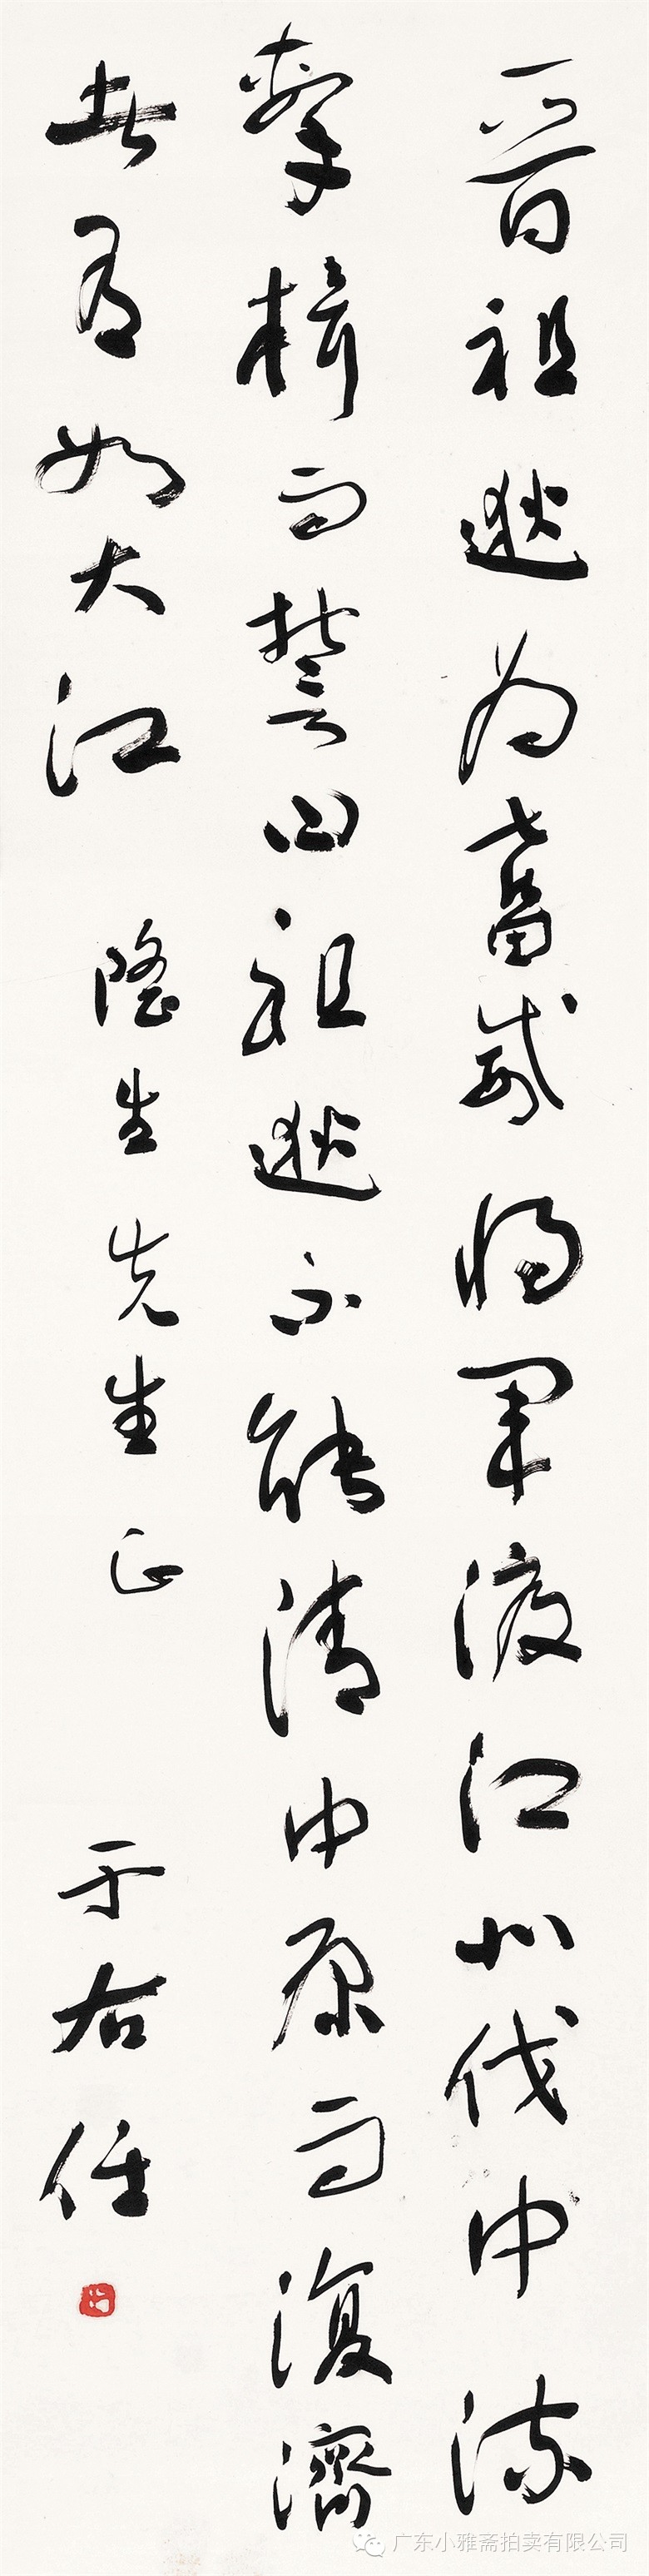 晉祖逖為奮威將軍渡江北伐中流
擊楫而誓曰祖逖不能清中原而復濟
者有如大江 隆生先生正 于右任
广东小雅斋拍卖有限公司